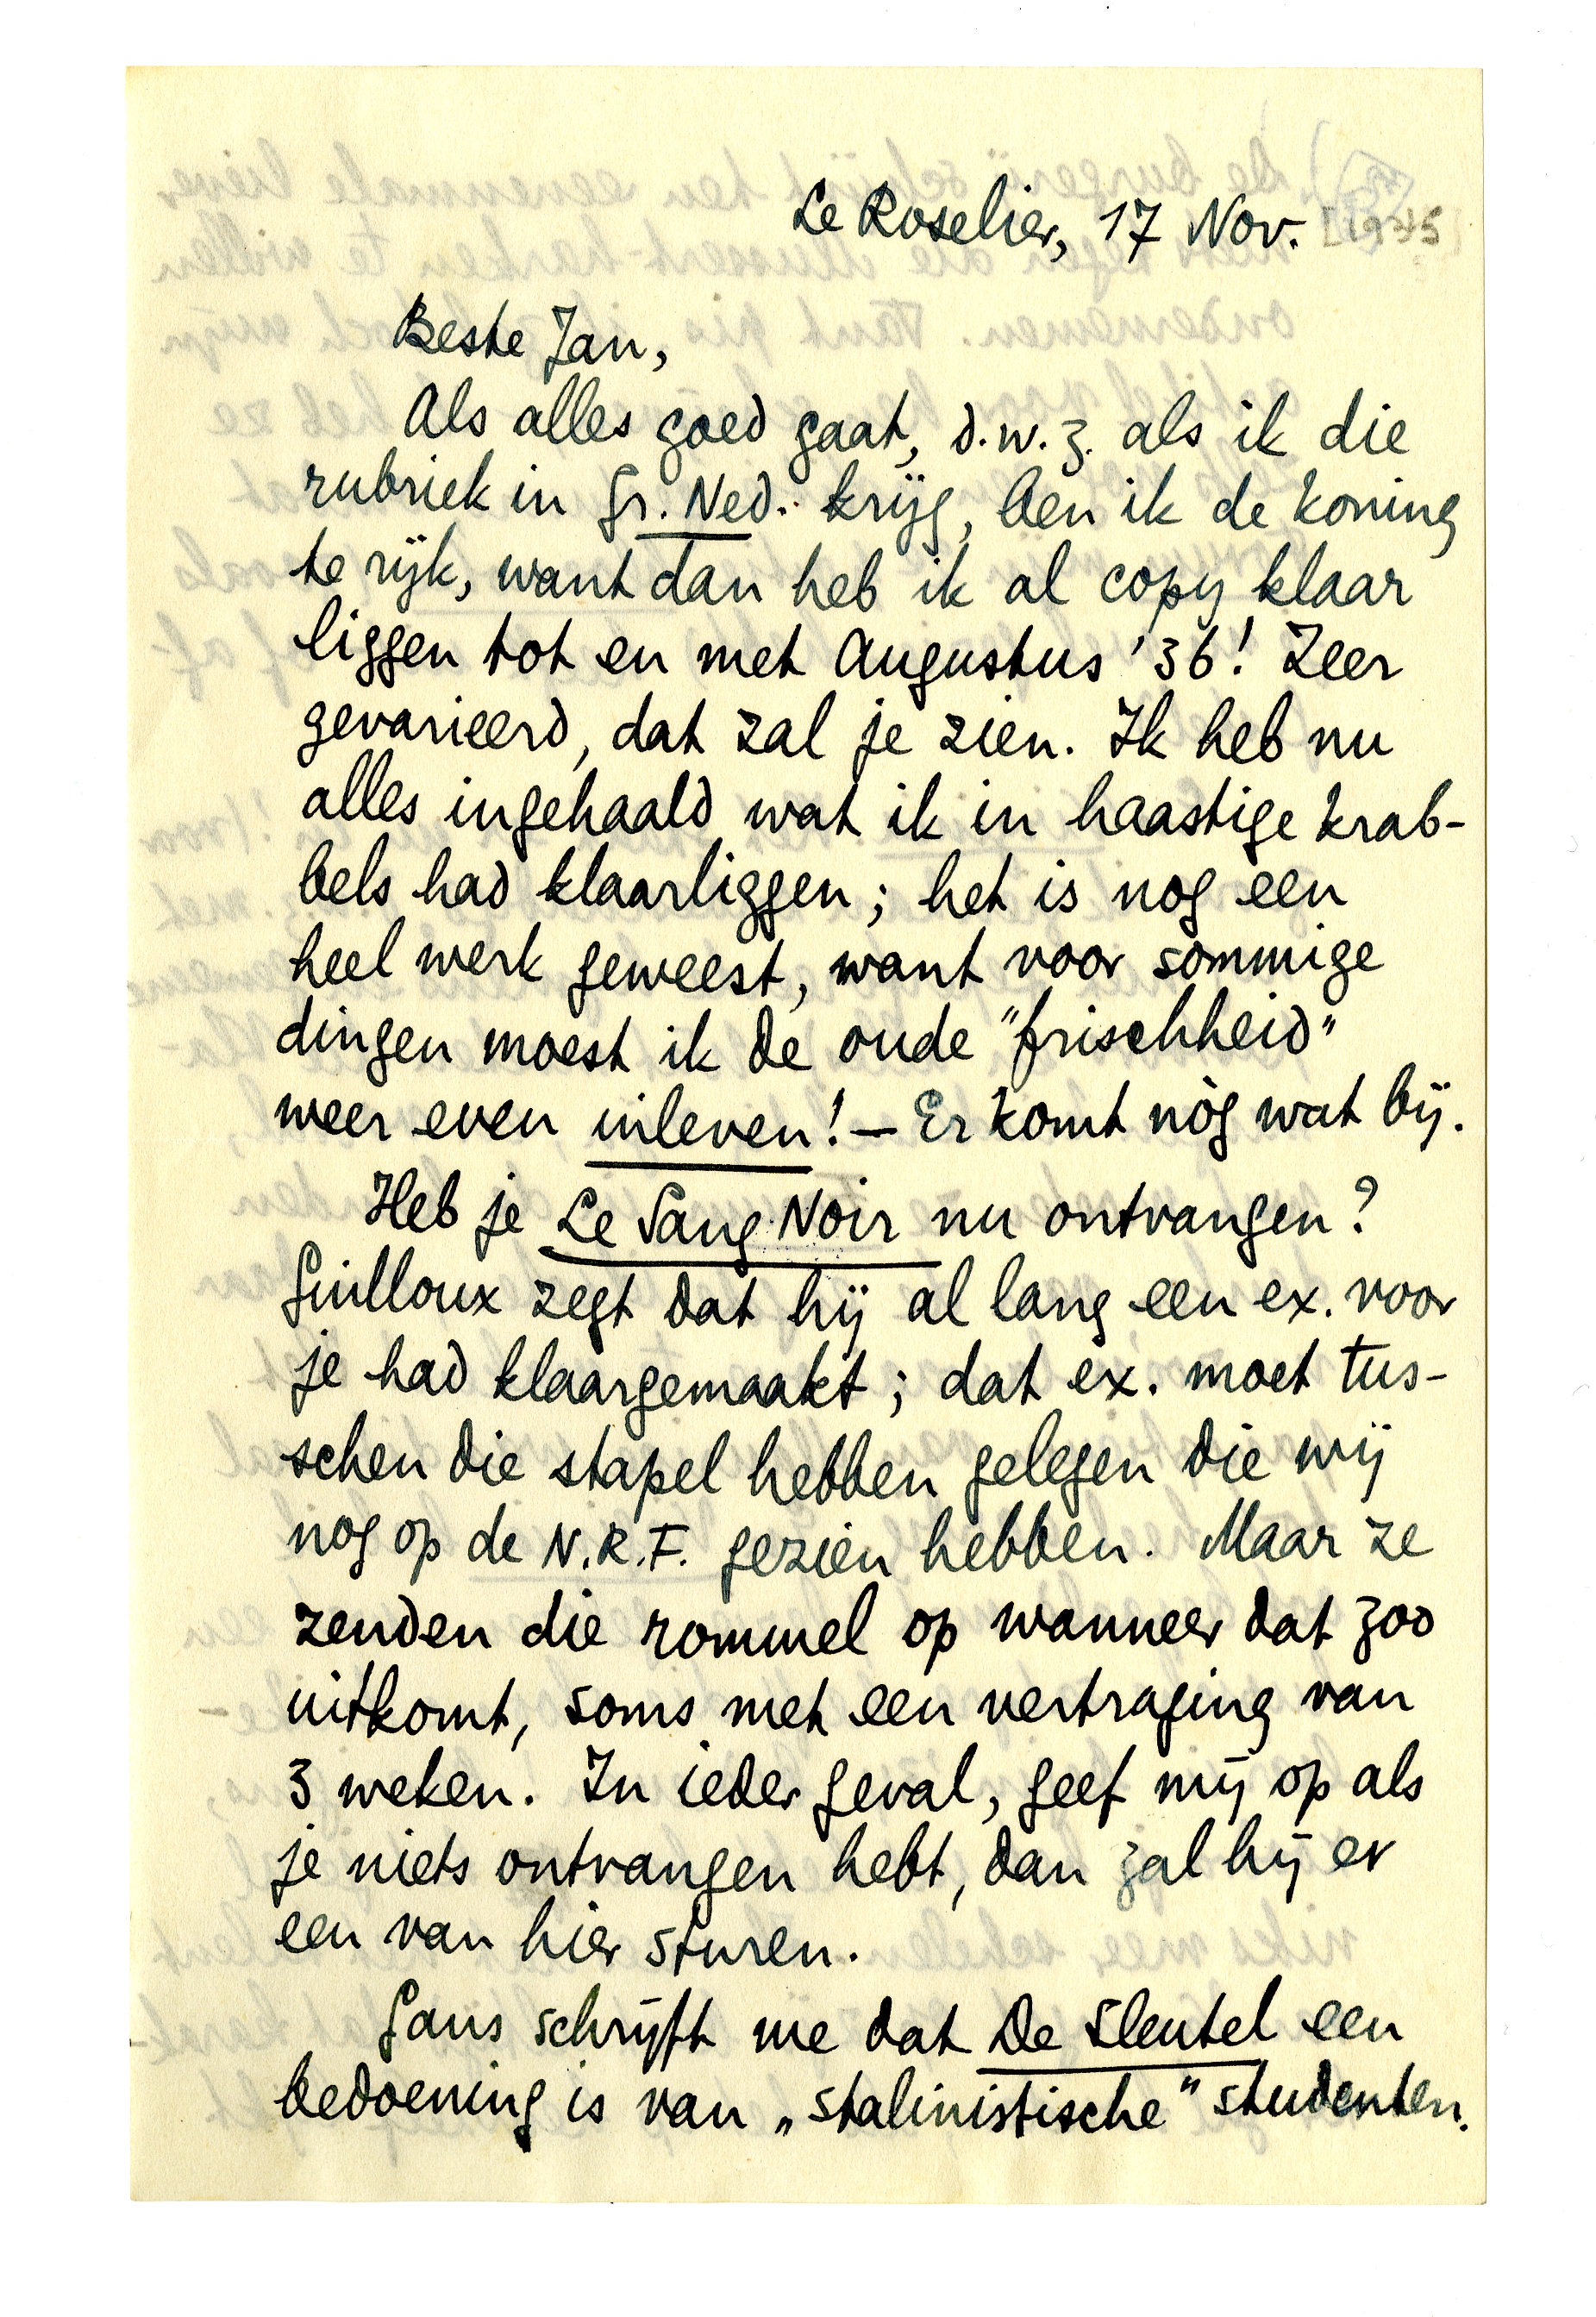 Le Roselier, 17 Nov. [1935]
Beste Jan,
Als alles goed gaat, d.w.z. als ik die
rubriek in Gr. Ned. krijg, ben ik de koning
te rijk, want dan heb ik al copy klaar
liggen tot en met Augustus '36! Zeer
gevarieerd, dat zal je zien. Ik heb nu
alles ingehaald wat ik in haastige krab-
bels had klaarliggen; het is nog een
heel werk geweest, want voor sommige
dingen moest ik de oude "frischheid"
weer even inleven! — Er komt nòg wat bij.
Heb je Le Sang Noir nu ontvangen?
Guilloux zegt dat hij al lang een ex. voor
je had klaargemaakt; dat ex. moet tus-
schen die stapel hebben gelegen die wij
nog op de N.R.F. gezien hebben. Maar ze
zenden die rommel op wanneer dat zoo
uitkomt, soms met een vertraging van
3 weken. In ieder geval, geef mij op als
je niets ontvangen hebt, dan zal hij er
een van hier sturen.
Gans schrijft me dat De Sleutel een
bedoening is van „stalinistische" studenten.